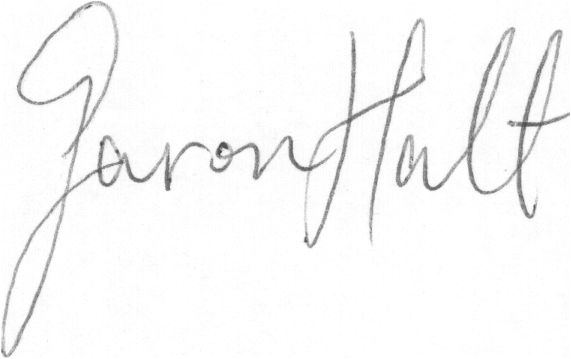 Jaron Halt